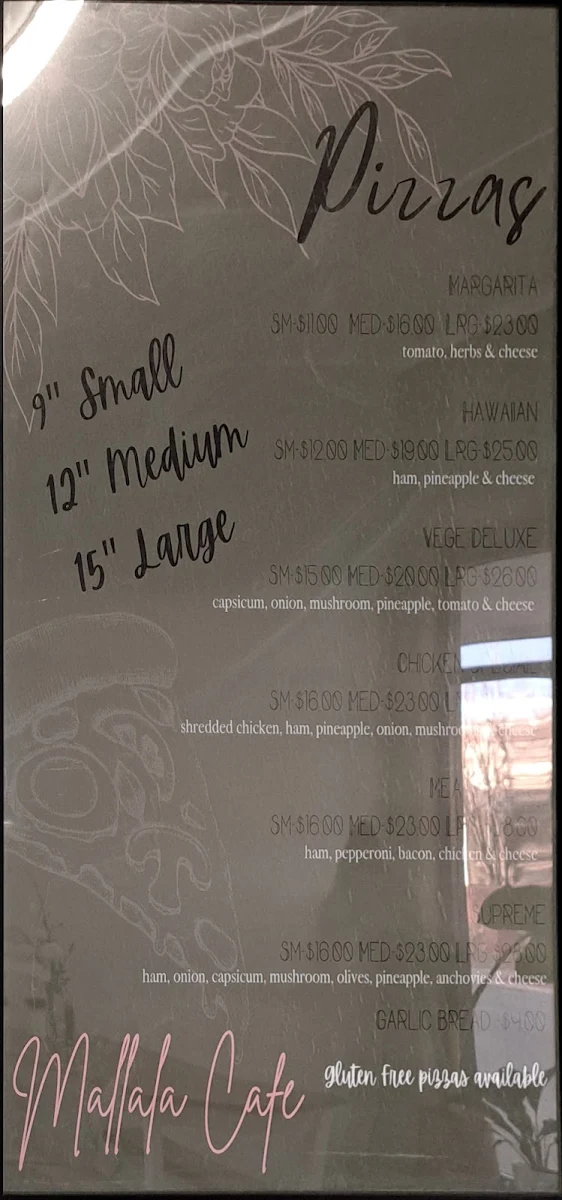 Pizzas
MARGARITA
SM-$11.00 MED-$16.00 LRG-$23.00
tomato, herbs & cheese
HAWAIIAN
SM-$12.00 MED-$19.00 LRG-$25.00
ham, pineapple & cheese
VEGE DELUXE
SM-$15.00 MED-$20.00 LRG-$26.00
capsicum, onion, mushroom, pineapple, tomato & cheese
CHICKEN SPECIAL
SM-$16.00 MED-$23.00
shredded chicken, ham, pineapple, onion, mushroom & cheese
SM-$16.00 MED-$23.00
ham, pepperoni, bacon, chicken & cheese
SUPREME
SM-$16.00 MED-$23.00 LRG-$28.00
ham, onion, capsicum, mushroom, olives, pineapple, anchovies & cheese
GARLIC BREAD -$4.00
gluten free pizzas available
9" Small
12" Medium
15" Large
Mallala Cafe